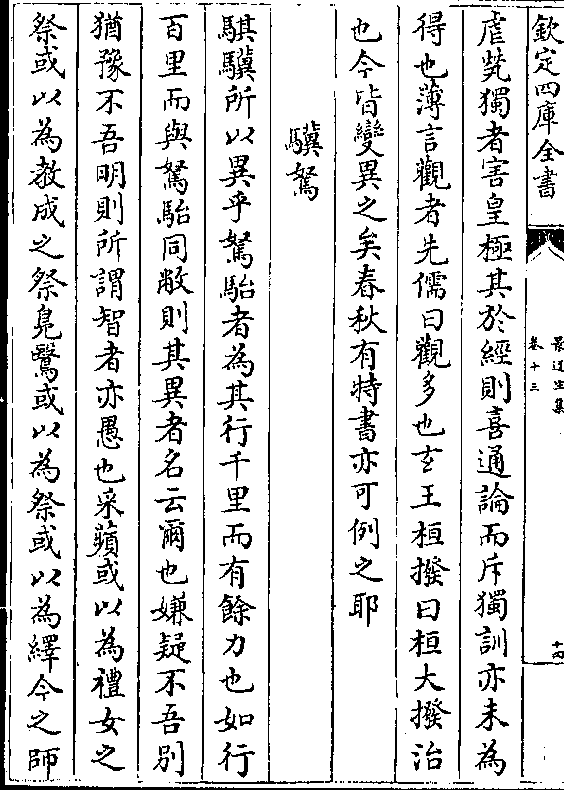 欽定四庫全書
景迂生集
卷十三
十四
虐煢獨者害皇極其於經則喜通論而斥獨訓亦未為
得也薄言觀者先儒曰觀多也玄王桓撥曰桓大撥治
也今皆變異之矣春秋有特書亦可例之耶
驥駑
騏驥所以異乎駑駘者為其行千里而有餘力也如行
百里而與駑駘同敝則其異者名云爾也嫌疑不吾別
猶豫不吾明則所謂智者亦愚也采蘋或以為禮女之
祭或以為教成之祭鳧鷖或以為祭或以為繹今之師